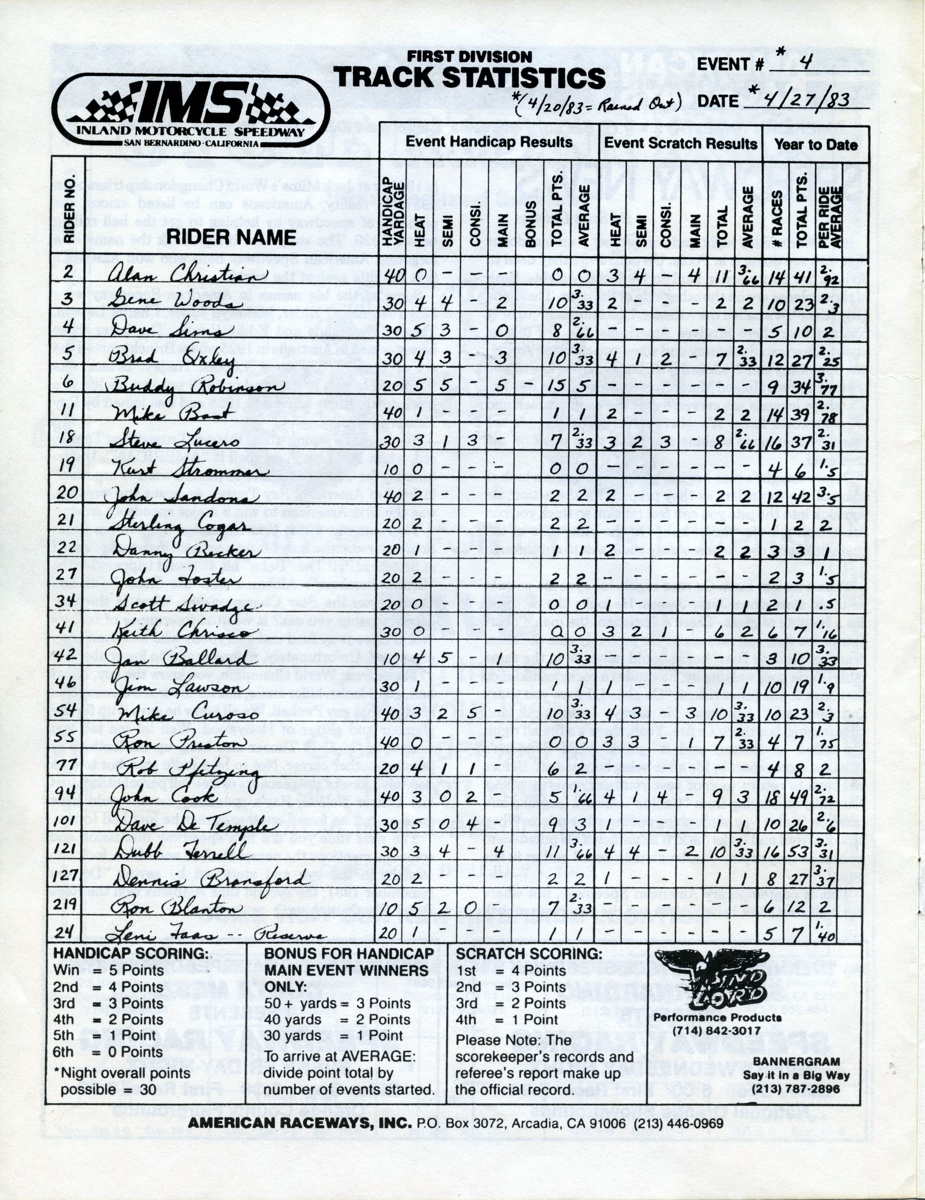 FIRST DIVISION
TRACK STATISTICS
*(4/20/83 = Rained Out)
EVENT # * 4
DATE * 4/27/83
IMS
INLAND MOTORCYCLE SPEEDWAY
SAN BERNARDINO · CALIFORNIA
Event Handicap Results Event Scratch Results Year to Date
RIDER NO. RIDER NAME HANDICAP YARDAGE HEAT SEMI CONSI. MAIN BONUS TOTAL PTS. AVERAGE HEAT SEMI CONSI. MAIN TOTAL AVERAGE # RACES TOTAL PTS. PER RIDE AVERAGE
2 Alan Christian 40 0 0 0 3 4 - 4 11 3.66 14 41 2.92
3 Gene Woods 30 4 4 - 2 10 3.33 2 - - - 2 2 10 23 2.3
4 Dave Sims 30 5 3 - 0 8 2.66 - - - - - - 5 10 2
5 Brad Oxley 30 4 3 - 3 10 3.33 4 1 2 - 7 2.33 12 27 2.25
6 Buddy Robinson 20 5 5 - 5 - 15 5 - - - - - - 9 34 3.77
11 Mike Bast 40 1 - - - 1 1 2 - - - 2 2 14 39 2.78
18 Steve Lucero 30 3 1 3 - 7 2.33 3 2 3 - 8 2.66 16 37 2.31
19 Kurt Strommer 10 0 - - - 0 0 - - - - - - 4 6 1.5
20 John Sandona 40 2 - - - 2 2 2 - - - 2 2 12 42 3.5
21 Sterling Cogar 20 2 - - - 2 2 - - - - - - 1 2 2
22 Danny Becker 20 1 - - - 1 1 2 - - - 2 2 3 3 1
27 John Foster 20 2 - - - 2 2 - - - - - - 2 3 1.5
34 Scott Swadge 20 0 - - - 0 0 1 - - - 1 1 2 1 .5
41 Keith Chrisco 30 0 - - - 0 0 3 2 1 - 6 2 6 7 1.16
42 Jan Ballard 10 4 5 - 1 10 3.33 - - - - - - 3 10 3.33
46 Jim Lawson 30 1 - - - 1 1 1 - - - 1 1 10 19 1.9
54 Mike Curoso 40 3 2 5 - 10 3.33 4 3 - 3 10 3.33 10 23 2.3
55 Ron Preston 40 0 - - - 0 0 3 3 - 1 7 2.33 4 7 1.75
77 Rob Pfetzing 20 4 1 1 - 6 2 - - - - - - 4 8 2
94 John Cook 40 3 0 2 - 5 1.66 4 1 4 - 9 3 18 49 2.72
101 Dave De Temple 30 5 0 4 - 9 3 1 - - - 1 1 10 26 2.6
121 Dubb Ferrell 30 3 4 - 4 11 3.66 4 4 - 2 10 3.33 16 53 3.31
127 Dennis Bransford 20 2 - - - 2 2 1 - - - 1 1 8 27 3.37
219 Ron Blanton 10 5 2 0 - 7 2.33 - - - - - - 6 12 2
24 Leni Faas -- Reserve 20 1 - - - 1 1 - - - - - - 5 7 1.40
HANDICAP SCORING:
Win = 5 Points
2nd = 4 Points
3rd = 3 Points
4th = 2 Points
5th = 1 Point
6th = 0 Points
*Night overall points
possible = 30
BONUS FOR HANDICAP
MAIN EVENT WINNERS
ONLY:
50 + yards = 3 Points
40 yards = 2 Points
30 yards = 1 Point
To arrive at AVERAGE:
divide point total by
number of events started.
SCRATCH SCORING:
1st = 4 Points
2nd = 3 Points
3rd = 2 Points
4th = 1 Point
Please Note: The
scorekeeper's records and
referee's report make up
the official record.
WIND LORD
Performance Products
(714) 842-3017
BANNERGRAM
Say it in a Big Way
(213) 787-2896
AMERICAN RACEWAYS, INC. P.O. Box 3072, Arcadia, CA 91006 (213) 446-0969